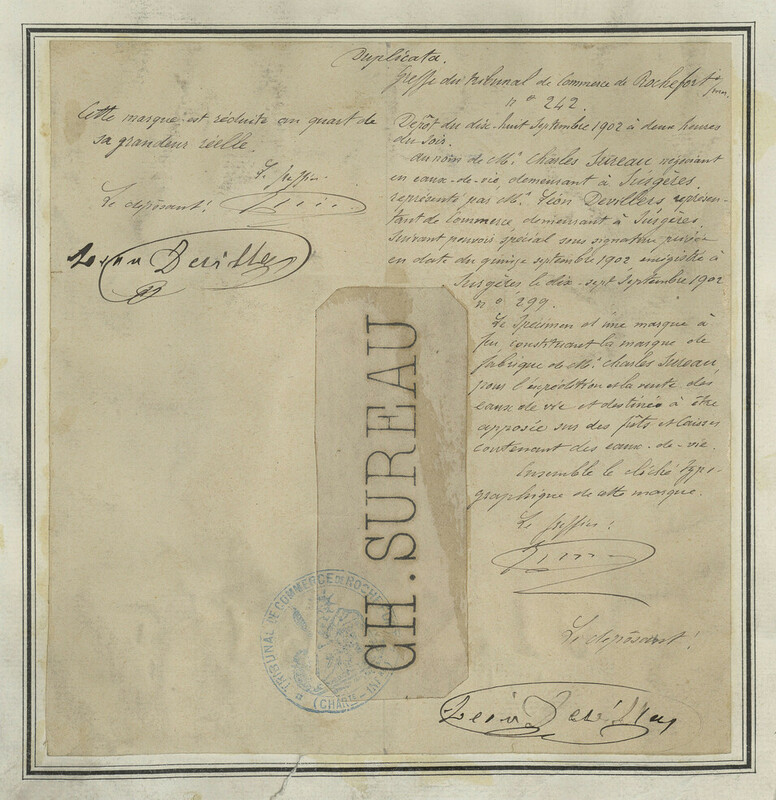 Duplicata.
Greffe du tribunal de Commerce de Rochefort s/mer.
n° 242.
Cette marque est réduite au quart de
sa grandeur réelle.
Le greffier
Le déposant:
Léon Devillers
Dépôt du dix-huit Septembre 1902 à deux heures
du soir.
au nom de Mr. Charles Sureau négociant
en eaux-de-vie, demeurant à Surgères,
représenté par Mr. Léon Devillers représen-
tant de Commerce demeurant à Surgères
suivant pouvoir spécial sous signature privée
en date du quinze septembre 1902 enregistré à
Surgères le dix-sept Septembre 1902
n° 299.
Le Spécimen est une marque à
feu constituant la marque de
fabrique de Mr. Charles Sureau,
pour l'expédition et la vente des
eaux de vie et destinée à être
apposée sur des fûts et caisses
contenant des eaux-de-vie.
Ensemble le cliché typo-
graphique de cette marque.
Le greffier:
Le déposant:
Léon Devillers
CH. SUREAU
TRIBUNAL DE COMMERCE DE ROCHEF
(CHARTE